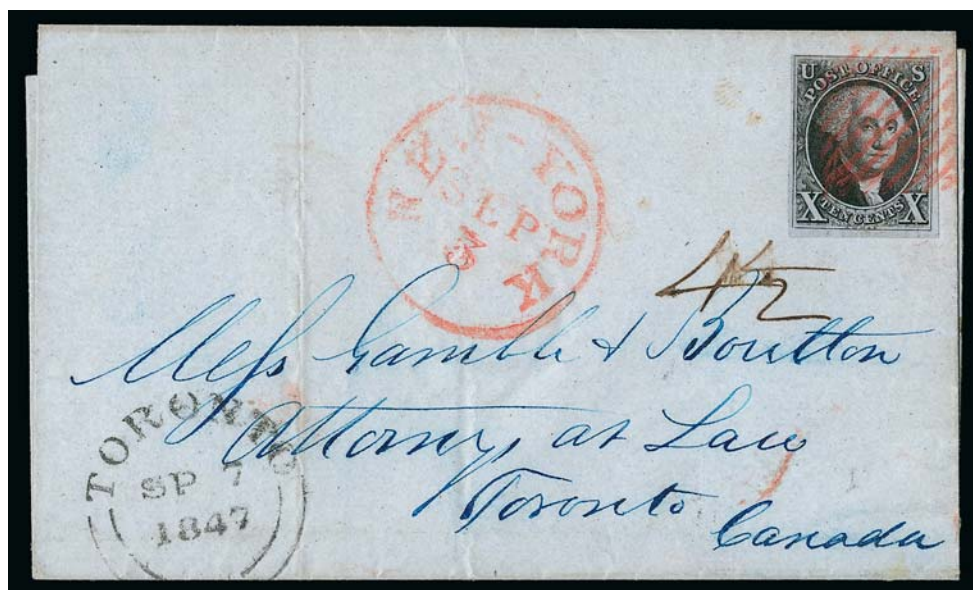 U POST OFFICE S
X TEN CENTS X
NEW-YORK
SEP
3
4½
Mess Gamble & Boulton
Attorneys at Law
Toronto
Canada
TORONTO
SP 7
1847